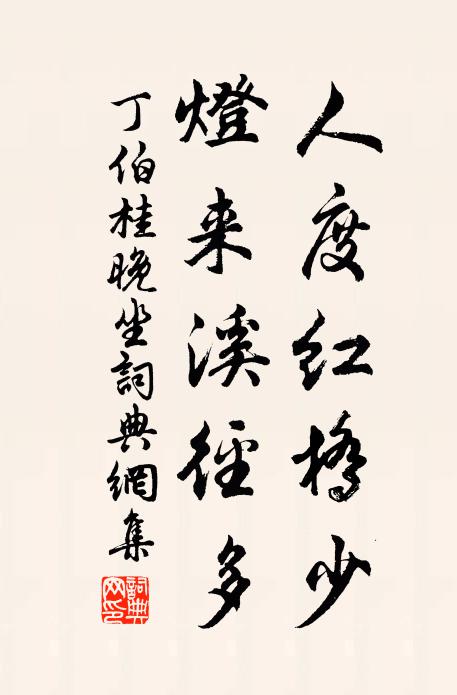 人度红橋少
燈来溪徑多
丁伯桂晚坐詞典網集
詞典网印